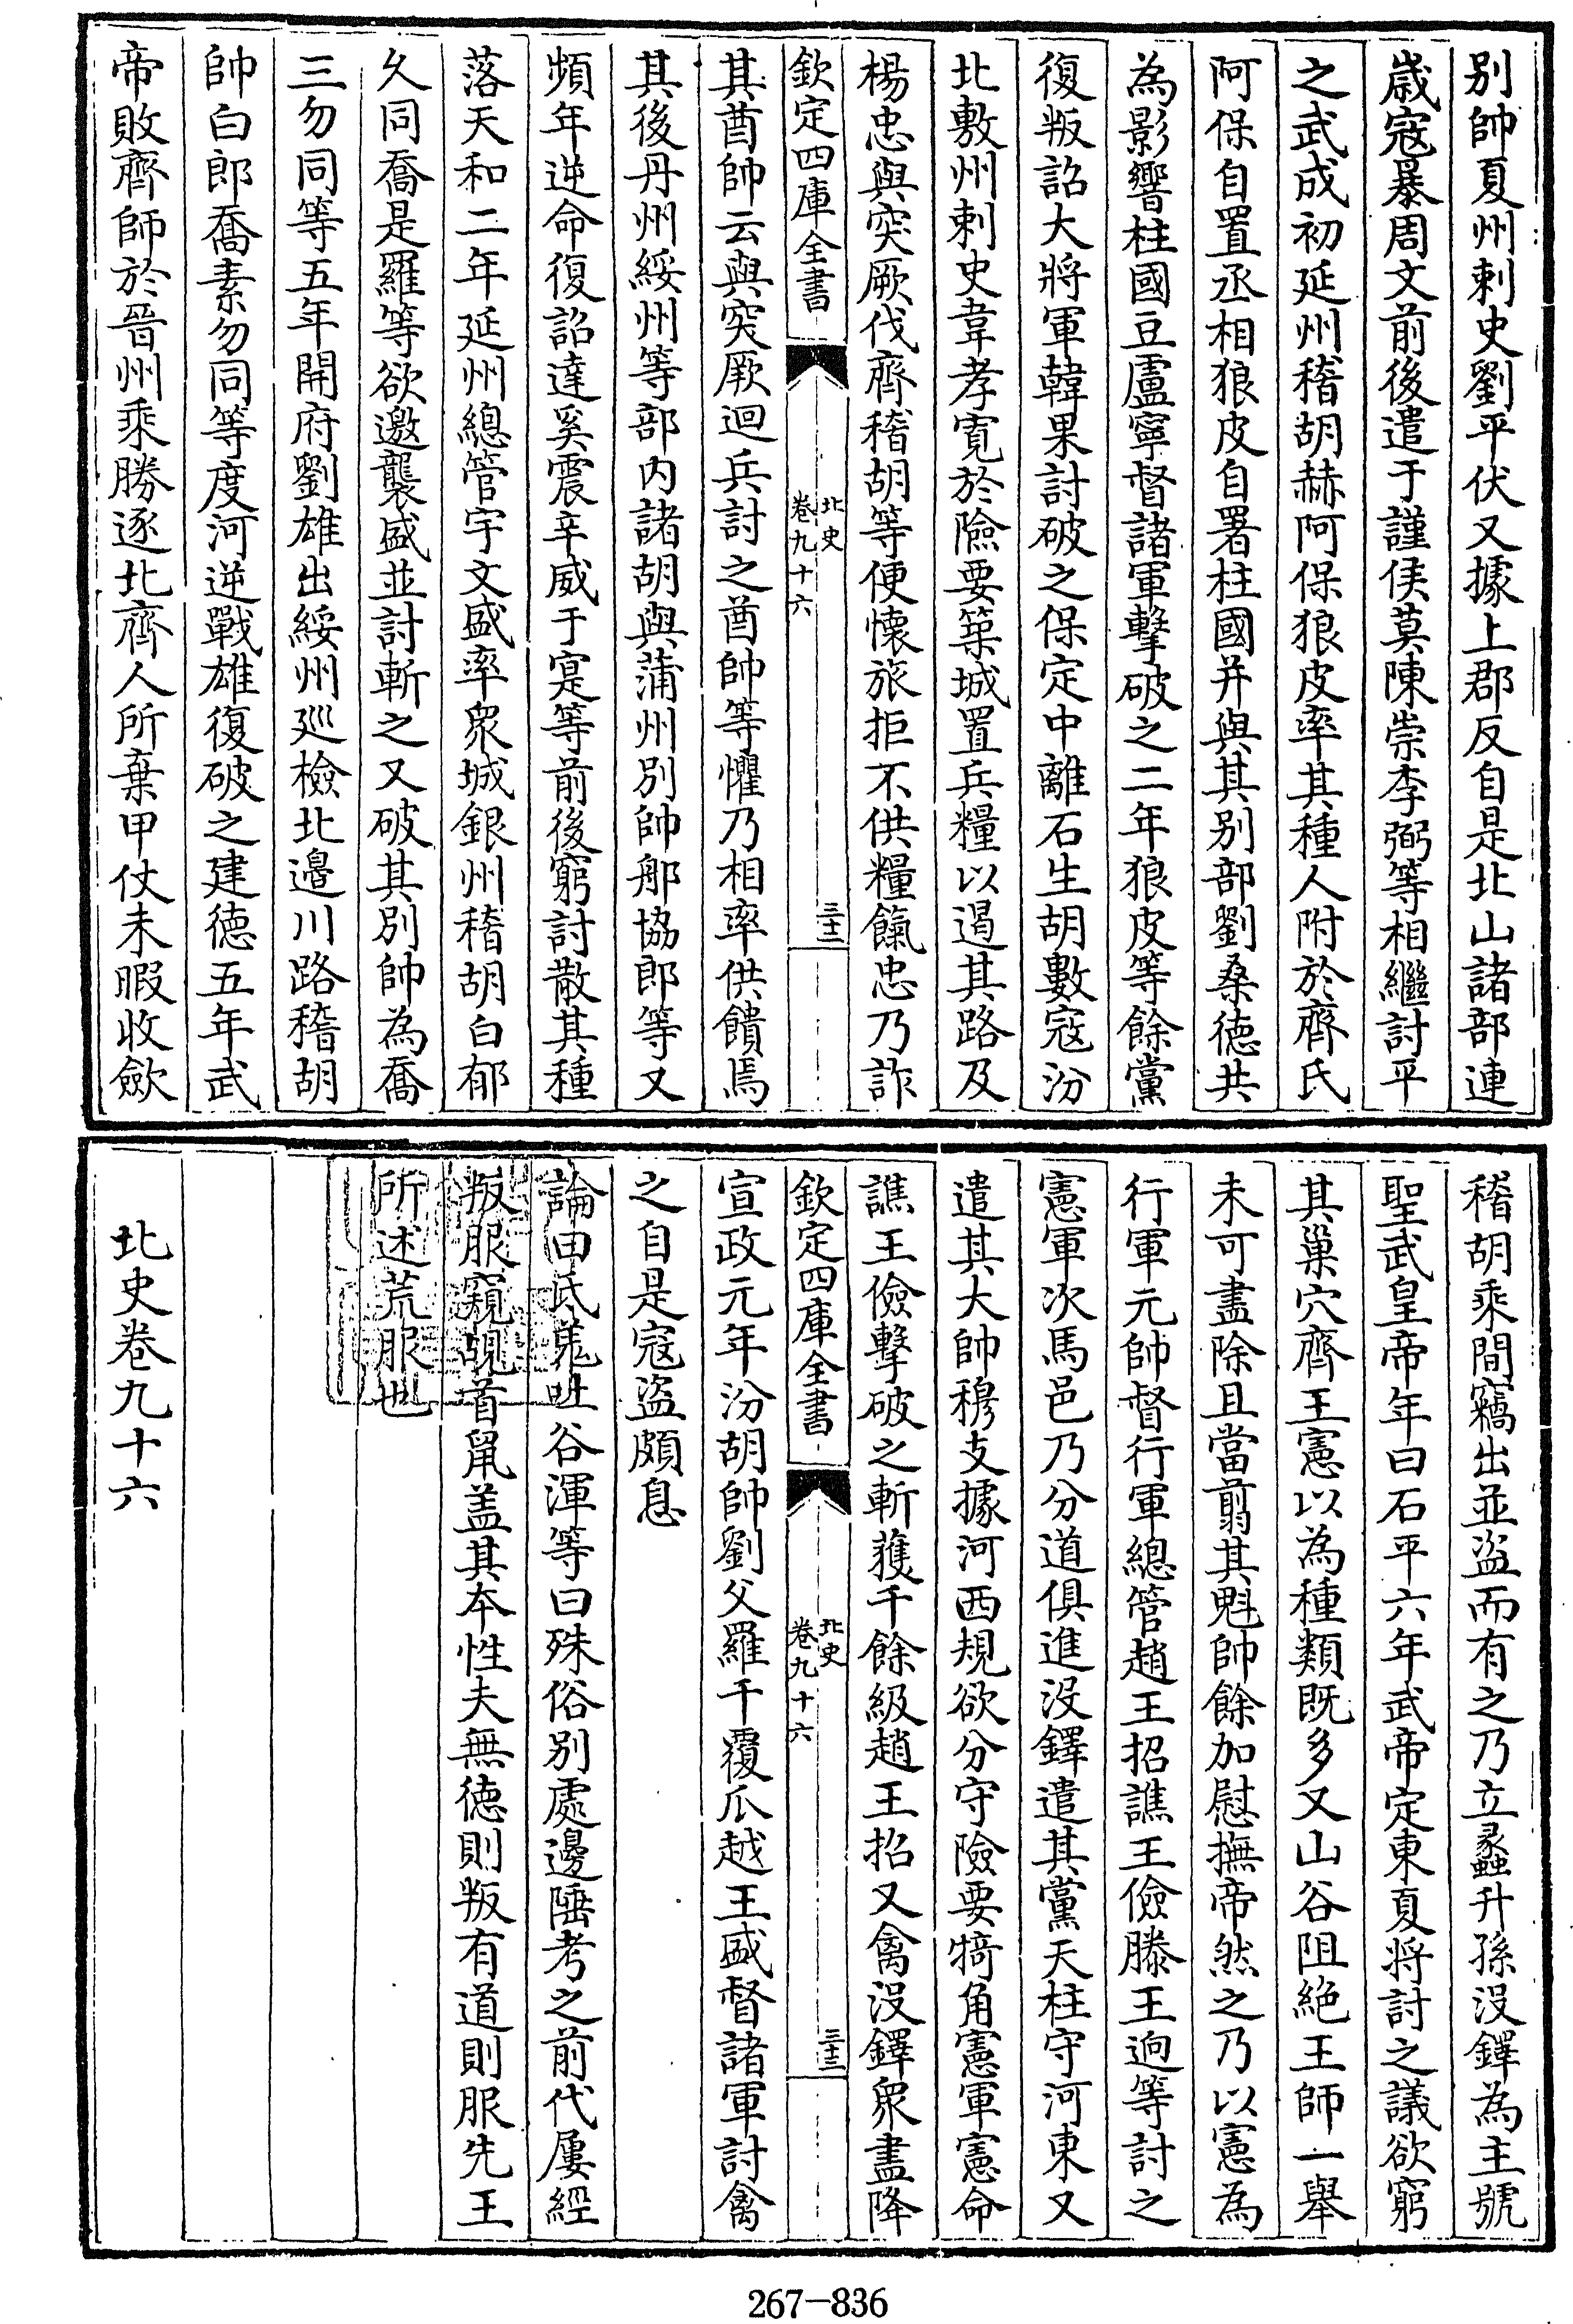 別帥夏州刺史劉平伏又據上郡反自是北山諸部連
歲寇暴周文前後遣于謹侯莫陳崇李弼等相繼討平
之武成初延州稽胡赫阿保狼皮率其種人附於齊氏
阿保自置丞相狼皮自署柱國并與其别部劉桑德共
為影響柱國豆盧寧督諸軍擊破之二年狼皮等餘黨
復叛詔大將軍韓果討破之保定中離石生胡數寇汾
北敷州刺史韋孝寛於險要築城置兵糧以遏其路及
楊忠與突厥伐齊稽胡等便懷旅拒不供糧餼忠乃詐
欽定四庫全書
北史
卷九十六
三十二
其酋帥云與突厥迴兵討之酋帥等懼乃相率供饋焉
其後丹州綏州等部内諸胡與蒲州別帥郍協郎等又
頻年逆命復詔達奚震辛威于寔等前後窮討散其種
落天和二年延州總管宇文盛率衆城銀州稽胡白郁
久同喬是羅等欲邀襲盛並討斬之又破其別帥為喬
三勿同等五年開府劉雄出綏州廵檢北邉川路稽胡
帥白郎喬素勿同等度河逆戰雄復破之建德五年武
帝敗齊師於晉州乘勝逐北齊人所棄甲仗未暇收歛
稽胡乘間竊出並盜而有之乃立蠡升孫没鐸為主號
聖武皇帝年曰石平六年武帝定東夏將討之議欲窮
其巢穴齊王憲以為種類既多又山谷阻絶王師一舉
未可盡除且當翦其魁帥餘加慰撫帝然之乃以憲為
行軍元帥督行軍總管趙王招譙王儉滕王逌等討之
憲軍次馬邑乃分道俱進没鐸遣其黨天柱守河東又
遣其大帥穆支據河西規欲分守險要犄角憲軍憲命
譙王儉擊破之斬獲千餘級趙王招又禽没鐸衆盡降
欽定四庫全書
北史
卷九十六
三十三
宣政元年汾胡帥劉父羅千覆爪越王盛督諸軍討禽
之自是寇盜頗息
論曰氐羌吐谷渾等曰殊俗别處邊陲考之前代屢經
叛服窺覘首鼠盖其本性夫無徳則叛有道則服先王
所述荒服也
北史卷九十六
267-836